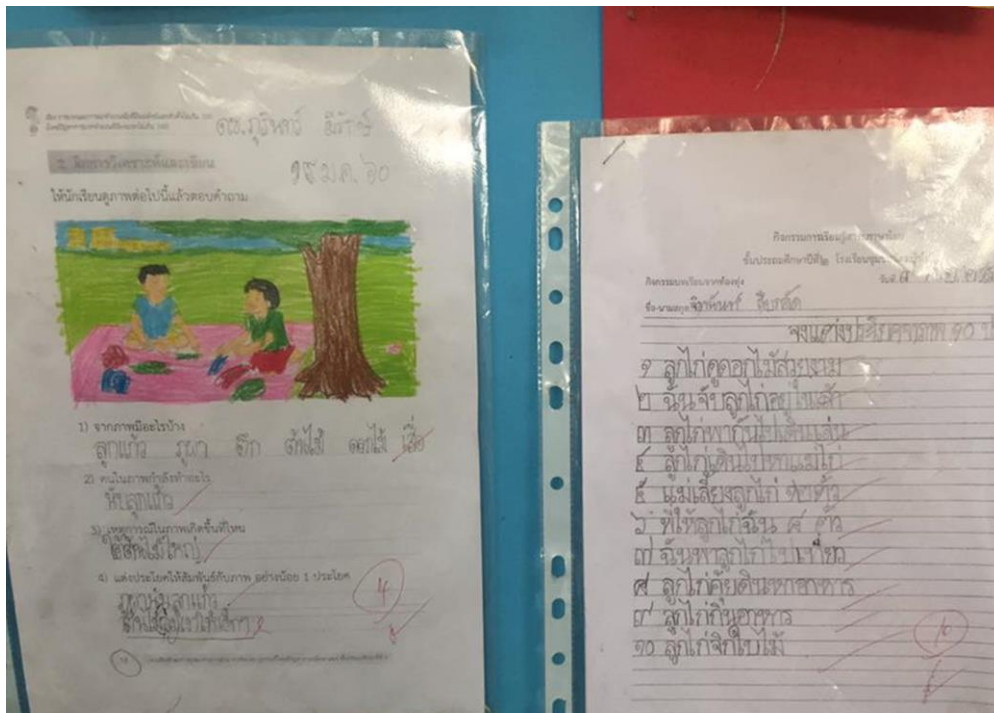 ด.ช. ภูรินทร์
๑๘ ม.ค. ๖๐
ให้นักเรียนดูภาพต่อไปนี้แล้วตอบคำถาม
1) จากภาพมีอะไรบ้าง
ลูกแก้ว ภูผา ตึก ต้นไม้ ดอกไม้ เสื่อ
2) คนในภาพกำลังทำอะไร
หยิบลูกแก้ว
3) เหตุการณ์ในภาพเกิดขึ้นที่ไหน
ใต้ต้นไม้ใหญ่
4) แต่งประโยคให้สัมพันธ์กับภาพ อย่างน้อย 1 ประโยค
ลูกแก้ว
4
กิจกรรมการเรียนรู้
ชั้นประถมศึกษาปีที่๒ โรงเรียนชุมชน
กิจกรรมบทเรียนจากท้องทุ่ง
ชื่อ-นามสกุล
จงแต่งประโยคจากภาพ ๑๐
๑ ลูกไก่ดูดอกไม้สวยงาม
๒ ฉันจับลูกไก่อยู่ในเล้า
๓ ลูกไก่พากันไปเดินเล่น
๔ ลูกไก่เดินไปหาแม่ไก่
๕ แม่เลี้ยงลูกไก่ ตัว
๖ ให้ลูกไก่ฉัน ๘ ตัว
๗ ฉันพาลูกไก่ไปเที่ยว
๘ ลูกไก่คุ้ยดินหาอาหาร
๙ ลูกไก่กินอาหาร
๑๐ ลูกไก่จิกใบไม้
10